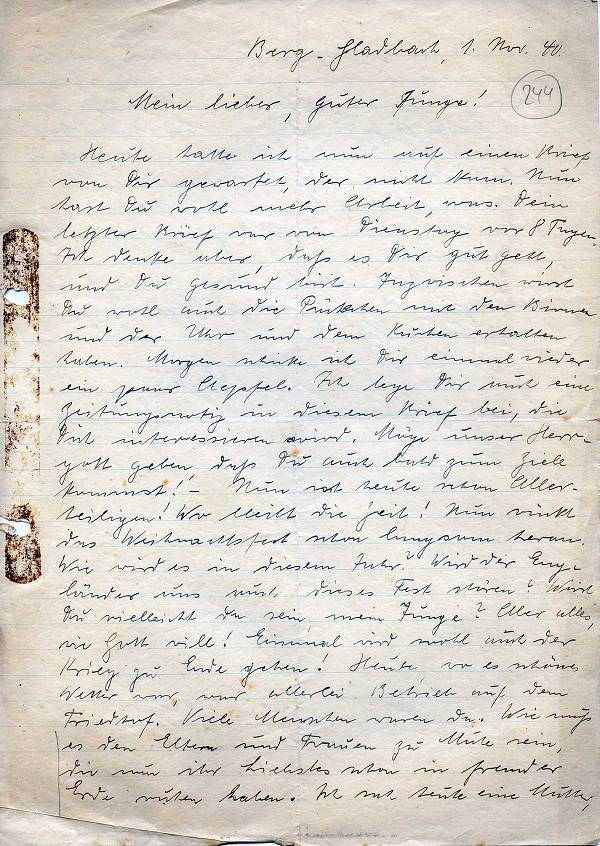 Berg.-Gladbach, 1. Nov. 40.
244
Mein lieber, guter Junge!
Heute hatte ich nun auf einen Brief
von Dir gewartet, der nicht kam. Nun
hast Du wohl mehr Arbeit, was. Dein
letzter Brief war vom Dienstag vor 8 Tagen.
Ich denke aber, daß es Dir gut geht,
und Du gesund bist. Inzwischen wirst
Du wohl auch die Päckchen mit den Birnen
und der Uhr und dem Kuchen erhalten
haben. Morgen schicke ich Dir einmal wieder
ein paar Aepfel. Ich lege Dir auch eine
Zeitungsnotiz in diesem Brief bei, die
Dich interessieren wird. Möge unser Herr-
gott geben, daß Du auch bald zum Ziele
kommst! – Nun ist heute schon Aller-
heiligen! Wo bleibt die Zeit! Nun rückt
das Weihnachtsfest schon langsam heran.
Wie wird es in diesem Jahr? Wird der Eng-
länder uns auch dieses Fest stören? Wirst
Du vielleicht da sein, mein Junge? Aber alles,
wie Gott will! Einmal wird wohl auch der
Krieg zu Ende gehen! Heute, wo es schönes
Wetter war, war allerlei Betrieb auf dem
Friedhof. Viele Menschen waren da. Wie muß
es den Eltern und Frauen zu Mute sein,
die nun ihr Liebstes schon in fremder
Erde ruhen haben. Ich sah heute eine Mutter,